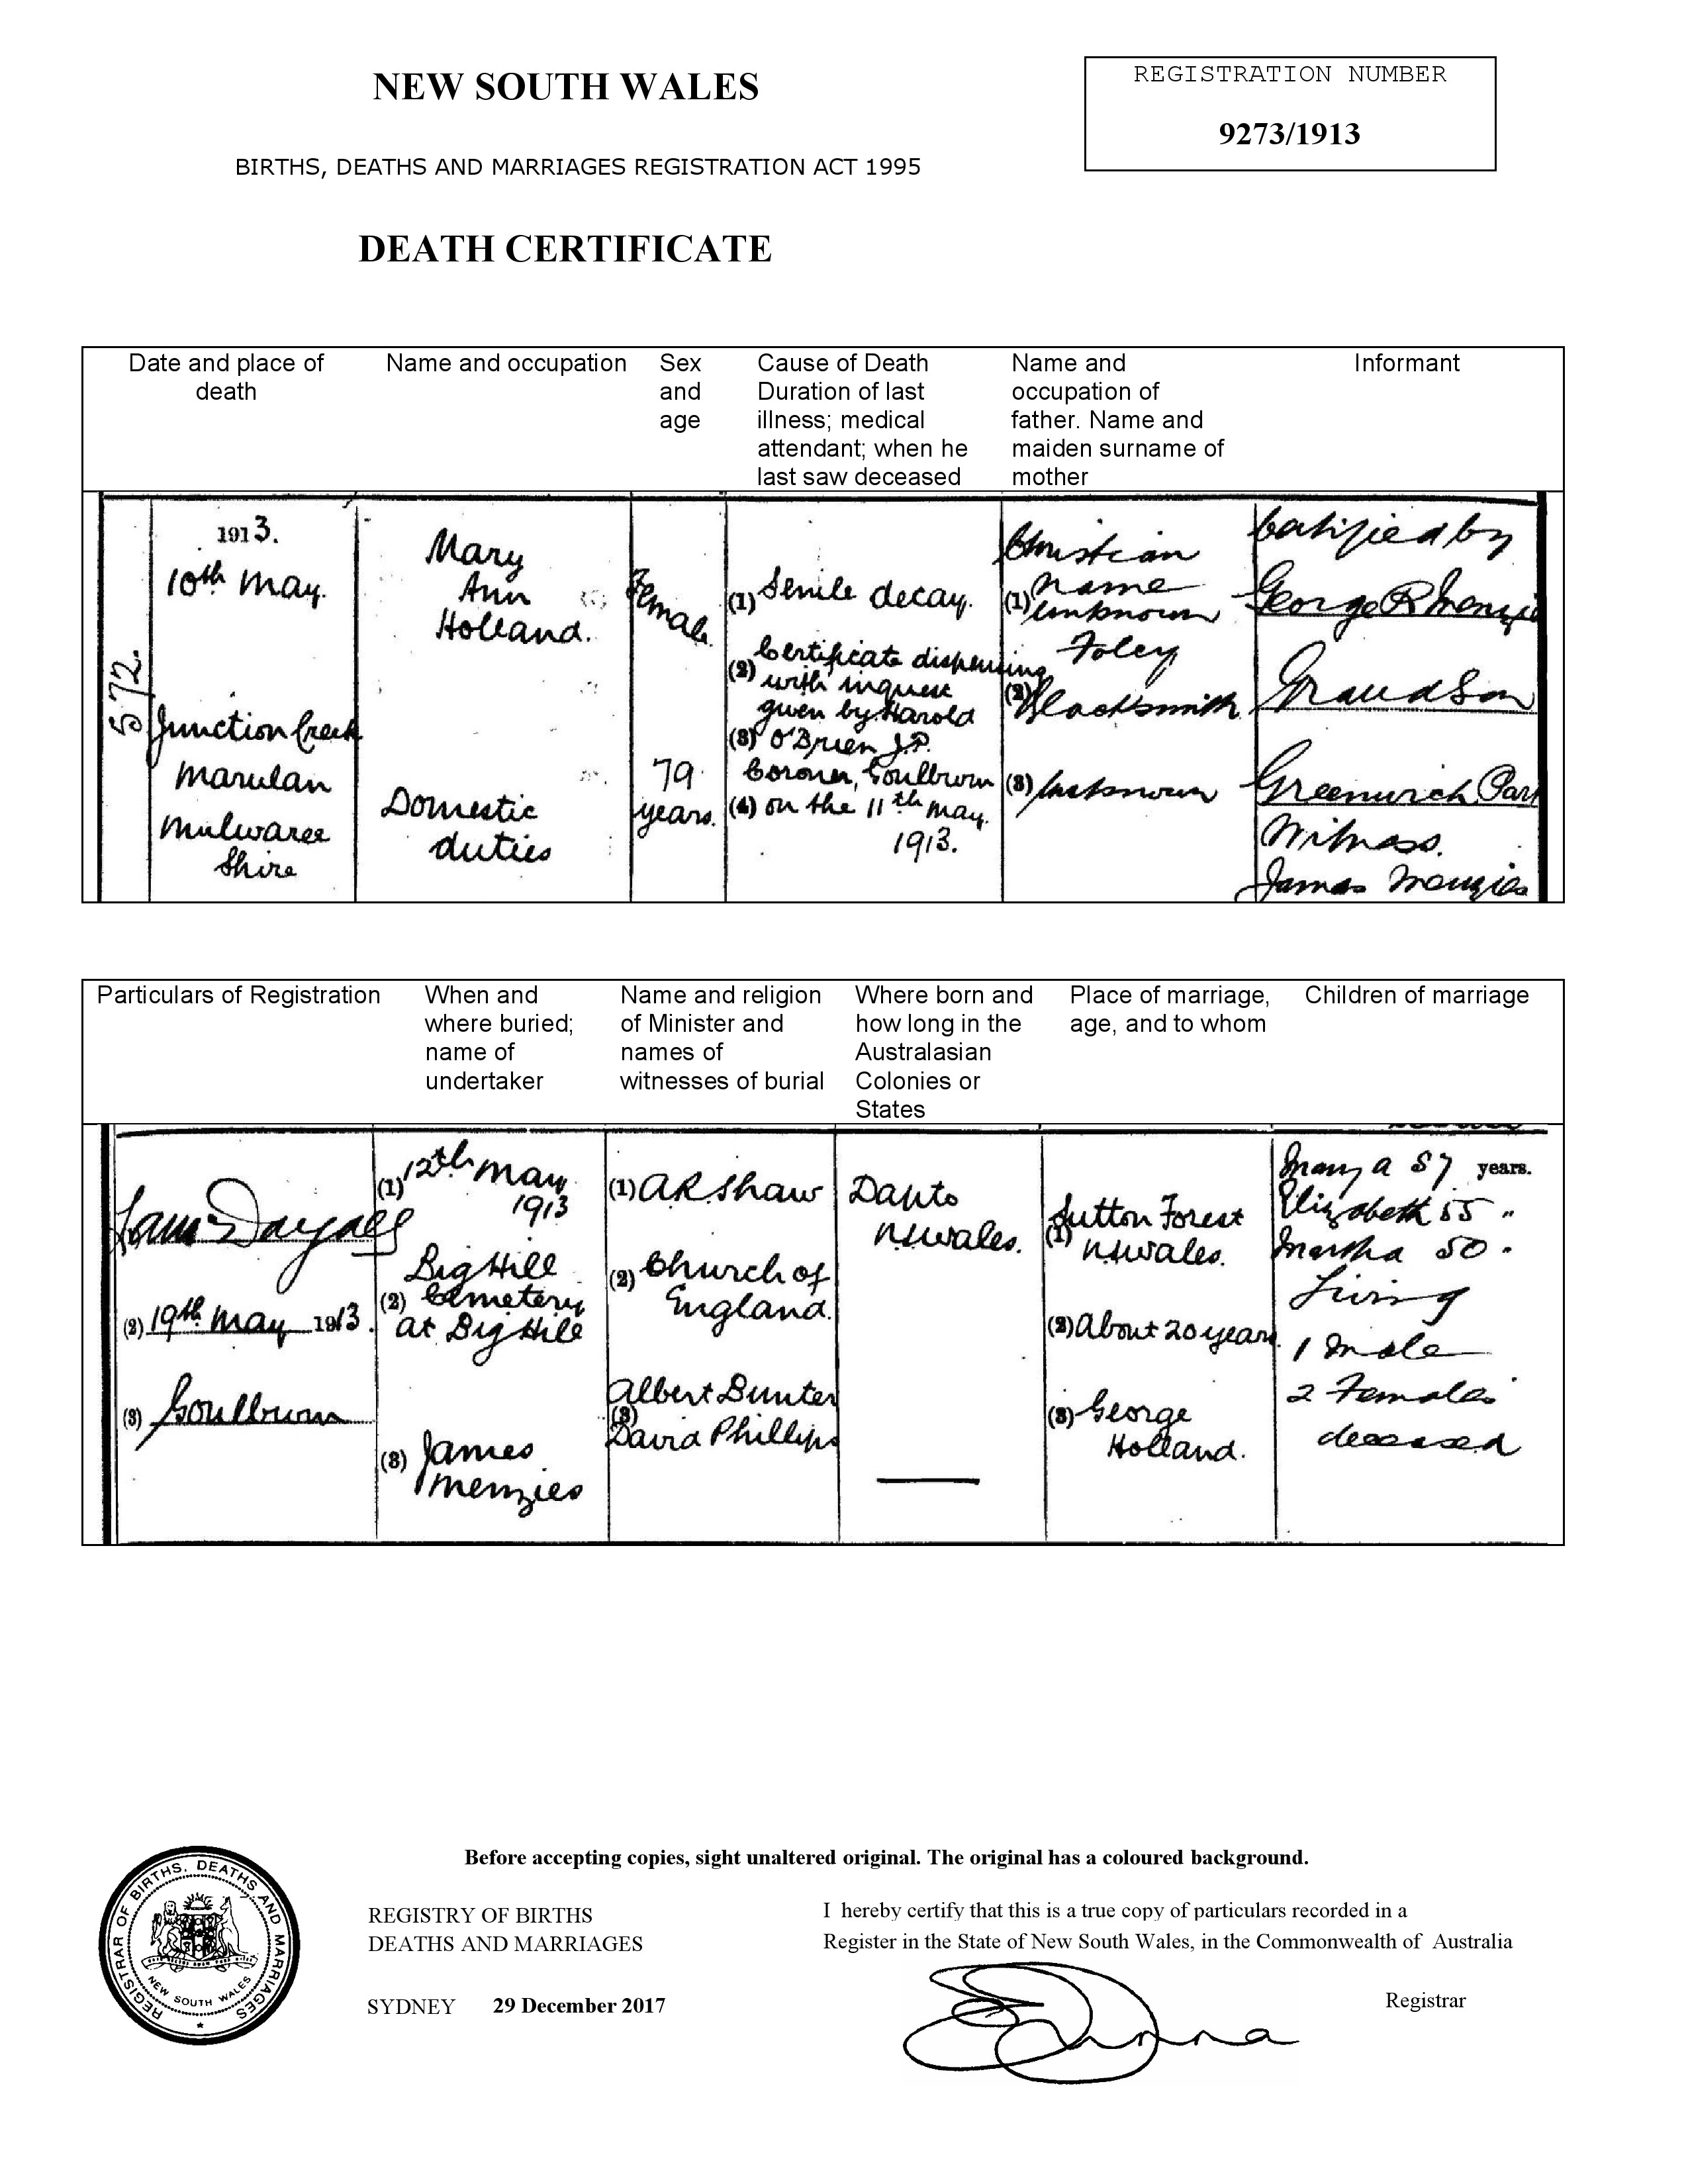 NEW SOUTH WALES
REGISTRATION NUMBER
9273/1913
BIRTHS, DEATHS AND MARRIAGES REGISTRATION ACT 1995
DEATH CERTIFICATE
Date and place of
death
Name and occupation
Sex
and
age
Cause of Death
Duration of last
illness; medical
attendant; when he
last saw deceased
Name and
occupation of
father. Name and
maiden surname of
mother
Informant
572.
1913.
10th May.
Junction Creek
Marulan
Mulwaree
Shire
Mary
Ann
Holland.
Domestic
duties
Female.
79
years.
(1) Senile decay.
Certificate dispensing
(2) with inquest
given by Harold
(3) O'Brien J.P.
Coroner, Goulburn
(4) on the 11th May.
1913.
Christian
name
(1) unknown
Foley
(2) Blacksmith
(3) Unknown
Certified by
George R Menzie
Grandson
Greenwich Park
Witness.
James Menzies
Particulars of Registration
When and
where buried;
name of
undertaker
Name and religion
of Minister and
names of
witnesses of burial
Where born and
how long in the
Australasian
Colonies or
States
Place of marriage,
age, and to whom
Children of marriage
(2) 19th May 1913.
(3) Goulburn
(1) 12th May
1913
Big Hill
(2) Cemetery
at Big Hill
(3) James
Menzies
(1) A R Shaw
(2) Church of
England.
Albert Bunter
(3)
David Phillips
Dapto
N.S.Wales.
Sutton Forest
(1) N.S.Wales.
(2) About 20 years.
(3) George
Holland.
Mary A 57 years.
Elizabeth 55 "
Martha 50 "
Living
1 Male
2 Females
deceased
Before accepting copies, sight unaltered original. The original has a coloured background.
REGISTRAR OF BIRTHS, DEATHS AND MARRIAGES
NEW SOUTH WALES
REGISTRY OF BIRTHS
DEATHS AND MARRIAGES
SYDNEY 29 December 2017
I hereby certify that this is a true copy of particulars recorded in a
Register in the State of New South Wales, in the Commonwealth of Australia
Registrar